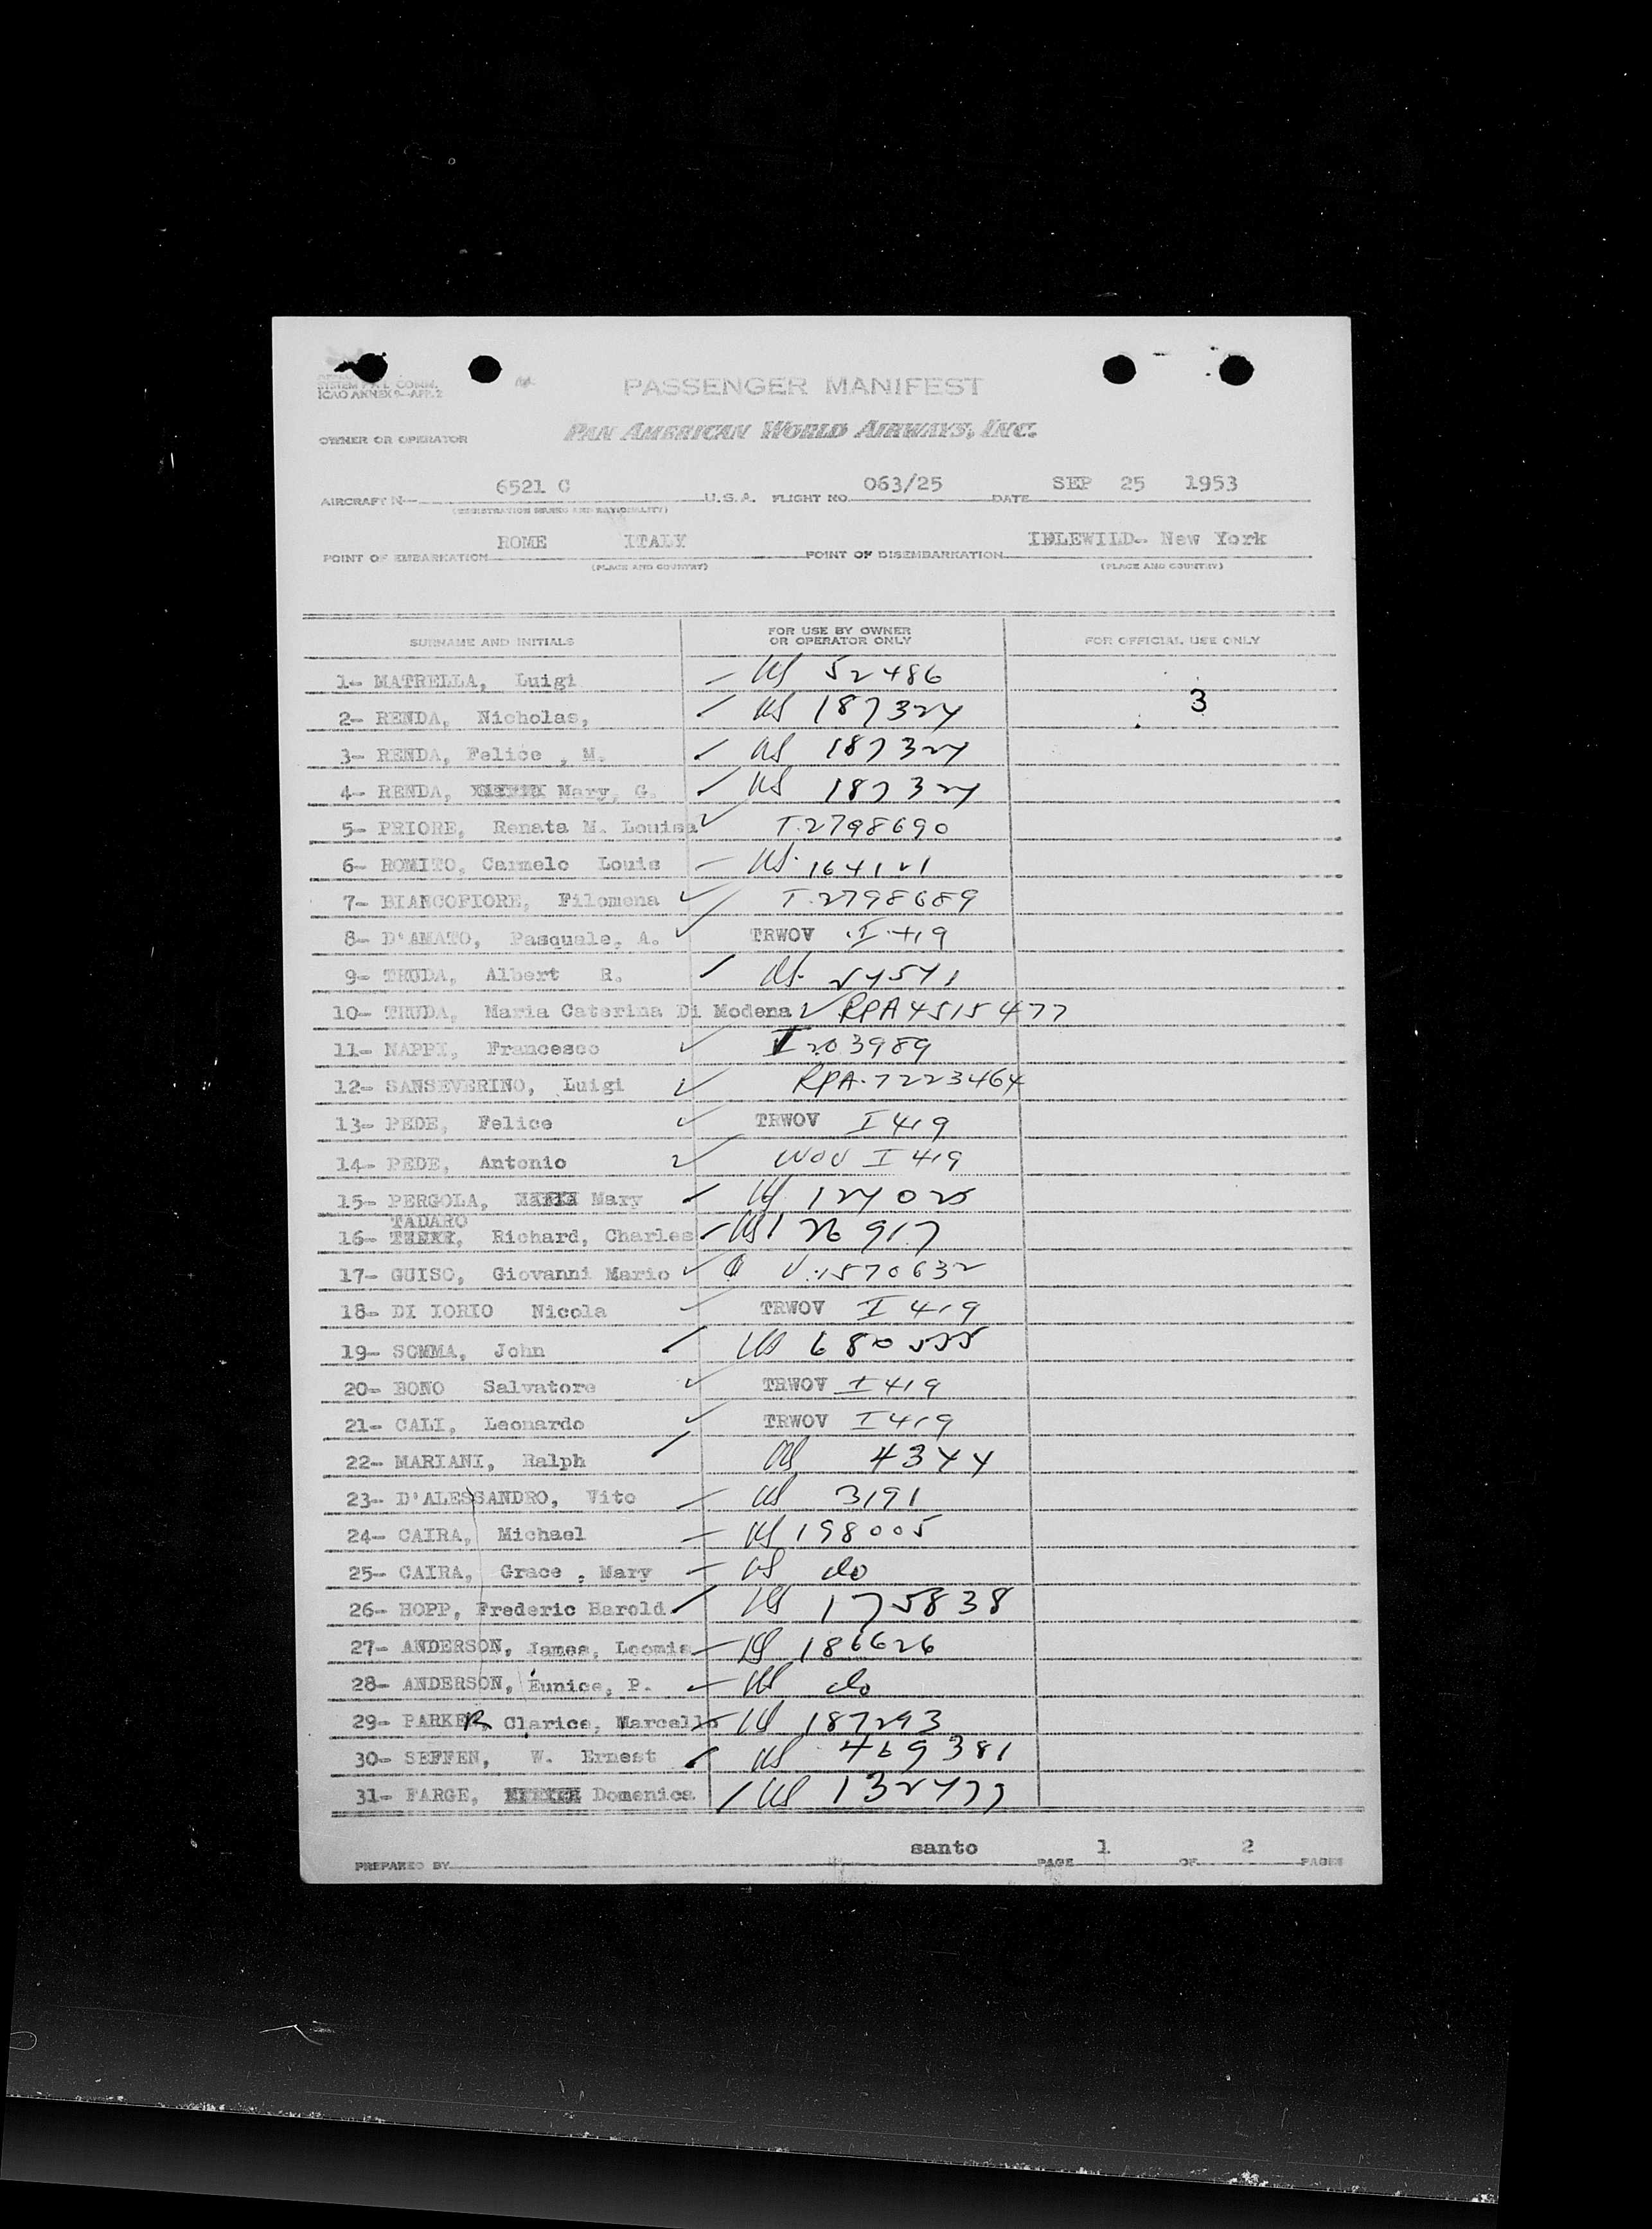 SYSTEM P.R.L. COMM.
ICAO ANNEX 9-APP. 2
PASSENGER MANIFEST
OWNER OR OPERATOR PAN AMERICAN WORLD AIRWAYS, INC.
AIRCRAFT N— 6521 C U.S.A. FLIGHT NO. 063/25 DATE SEP 25 1953
(REGISTRATION MARKS AND NATIONALITY)
POINT OF EMBARKATION ROME ITALY POINT OF DISEMBARKATION IDLEWILD- New York
(PLACE AND COUNTRY) (PLACE AND COUNTRY)
SURNAME AND INITIALS FOR USE BY OWNER OR OPERATOR ONLY FOR OFFICIAL USE ONLY
1- MATRELLA, Luigi – US 52486
2- RENDA, Nicholas, ✓ US 187324 3
3- RENDA, Felice , M. ✓ US 187324
4- RENDA, Mary, G. ✓ US 187324
5- PRIORE, Renata M. Louisa ✓ I.2798690
6- ROMITO, Carmelo Louis – US 164121
7- BIANCOFIORE, Filomena ✓ I.2798689
8- D'AMATO, Pasquale, A. ✓ TRWOV I 419
9- TRUDA, Albert R. ✓ US 24541
10- TRUDA, Maria Caterina Di Modena ✓ RPA 4515477
11- NAPPI, Francesco ✓ I 203989
12- SANSEVERINO, Luigi ✓ RPA. 7223464
13- PEDE, Felice ✓ TRWOV I 419
14- PEDE, Antonio ✓ WOV I 419
15- PERGOLA, Mary ✓ US 124025
TADARO
16- Richard, Charles ✓ US 126917
17- GUISO, Giovanni Mario ✓ V.1570632
18- DI IORIO Nicola ✓ TRWOV I 419
19- SOMMA, John ✓ US 680555
20- BONO Salvatore ✓ TRWOV I 419
21- CALI, Leonardo ✓ TRWOV I 419
22- MARIANI, Ralph ✓ US 4344
23- D'ALESSANDRO, Vito – US 3191
24- CAIRA, Michael – US 198005
25- CAIRA, Grace , Mary – US do
26- HOPP, Frederic Harold ✓ US 175838
27- ANDERSON, James, Loomis – US 186626
28- ANDERSON, Eunice, P. – US do
29- PARKER Clarice, Marcello – US 187293
30- SEFFEN, W. Ernest ✓ US 469381
31- FARGE, Domenica ✓ US 132477
PREPARED BY santo PAGE 1 OF 2 PAGES